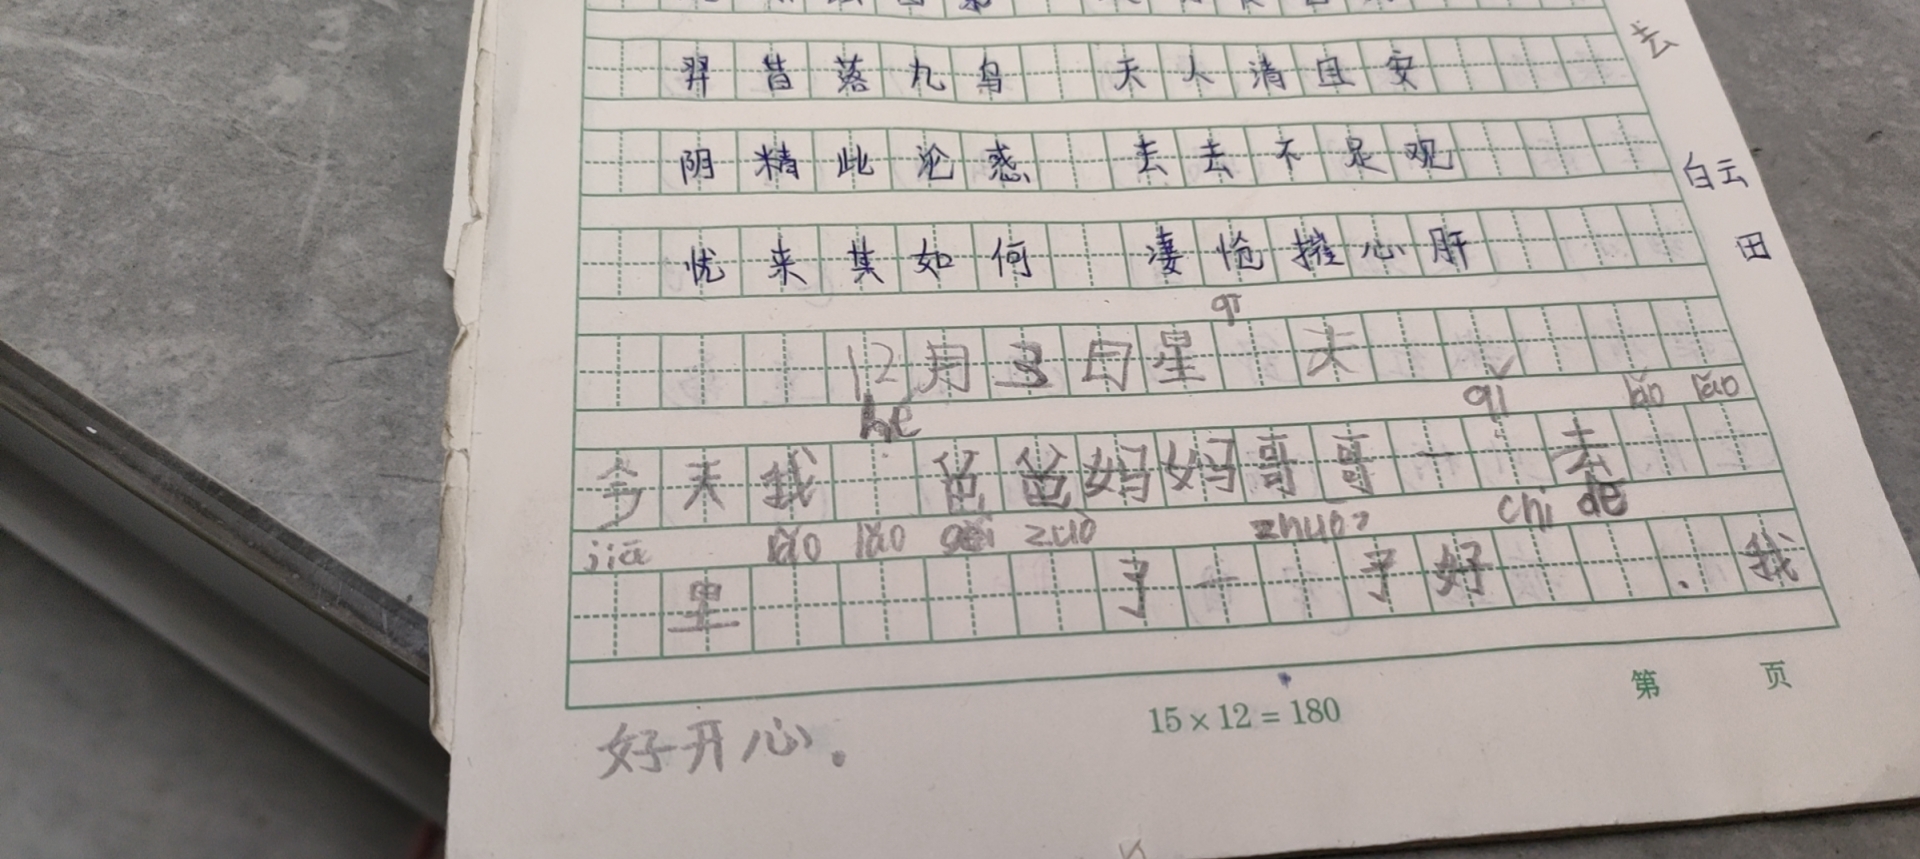 羿昔落九乌 天人清且安
去
阴精此沦惑 去去不足观
白云
忧来其如何 凄怆摧心肝
田
qī
12月3日星 天
hé
qǐ lǎo lǎo
今天我 爸爸妈妈哥哥一 去
jiā lǎo lǎo gěi zuò zhuō chī de
里 了一 子好 . 我
15×12=180
第 页
好开心.